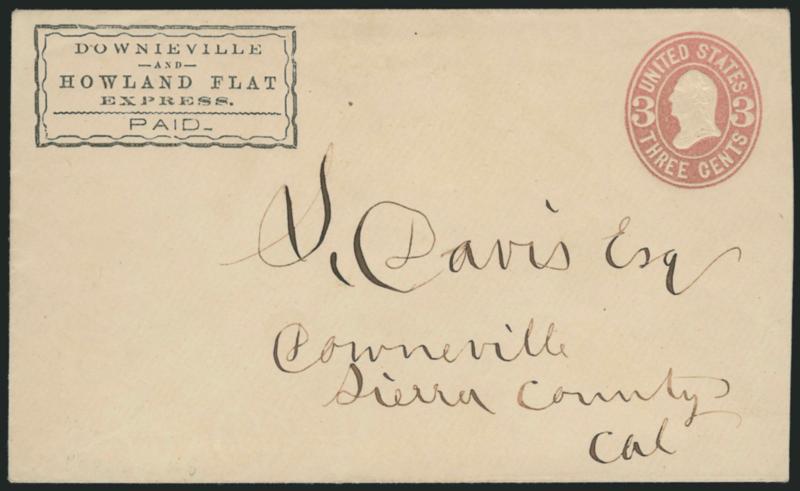 DOWNIEVILLE
—AND—
HOWLAND FLAT
EXPRESS.
PAID-
UNITED STATES
3 3
THREE CENTS
S. Davis Esq
Downeville
Sierra County
Cal